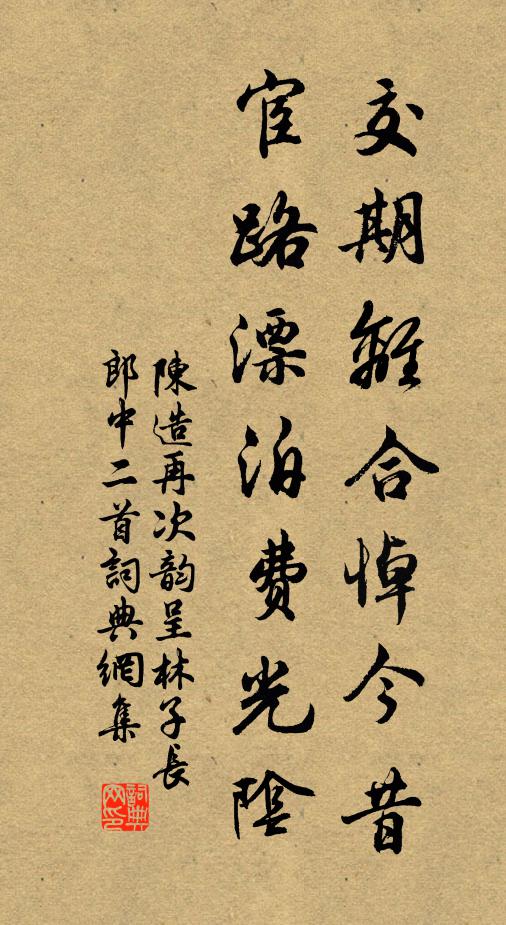 交期離合悼今昔
宦路漂泊費光陰
陳造再次韵呈林子長
郎中二首詞典網集
詞典网印